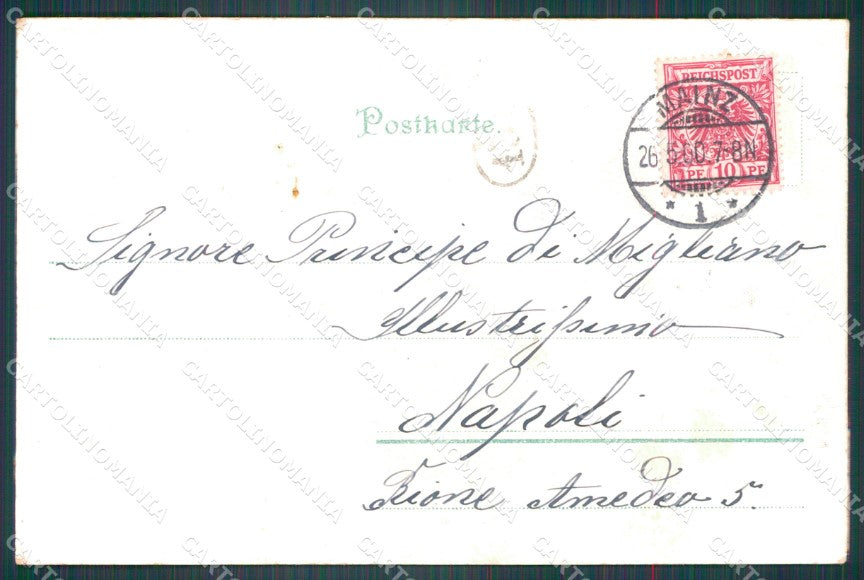 REICHSPOST
MAINZ
Postkarte.
26 5 00 7-8N
PF 10 PF
* 1 *
Signore Principe di Migliano
Illustrissimo
Napoli
Rione Amedeo 5.
CARTOLINOMANIA